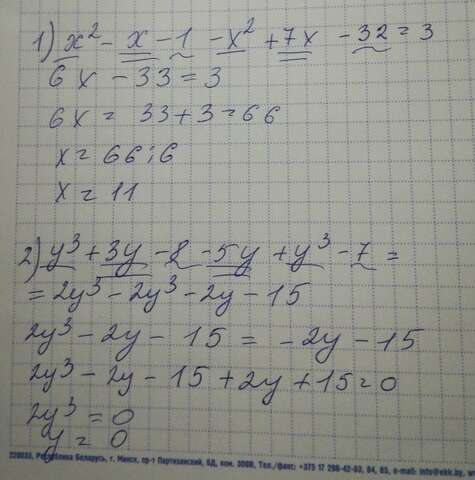 1) x² - x - 1 - x² + 7x - 32 = 3
6x - 33 = 3
6x = 33 + 3 = 66
x = 66 : 6
x = 11
2) y³ + 3y - 8 - 5y + y³ - 7 =
= 2y³ - 2y³ - 2y - 15
2y³ - 2y - 15 = - 2y - 15
2y³ - 2y - 15 + 2y + 15 = 0
2y³ = 0
y = 0
220033, Республика Беларусь, г. Минск, пр-т Партизанский, 6Д, ком. 300В, Тел./факс: +375 17 298-42-83, 84, 85, e-mail: info@ekk.by,